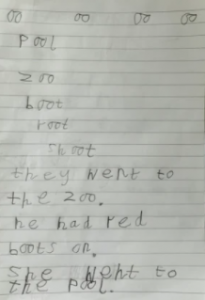 oo oo oo oo
pool
zoo
boot
root
shoot
they went to
the zoo.
he had red
boots on.
She went to
the pool.